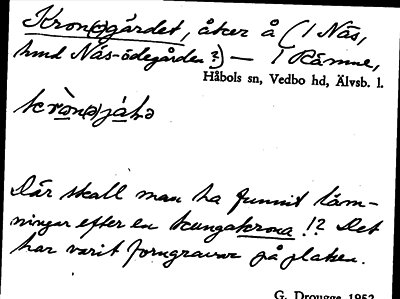 Kron(e)gärdet, åker å (1 Näs,
hmd Näs-ödegården?) — 1 Rämne,
Håbols sn, Vedbo hd, Älvsb. l.
Där skall man ha funnit läm-
ningar efter en kungakrona !? Det
har varit forngravar på platsen.
G. Drougge 1952